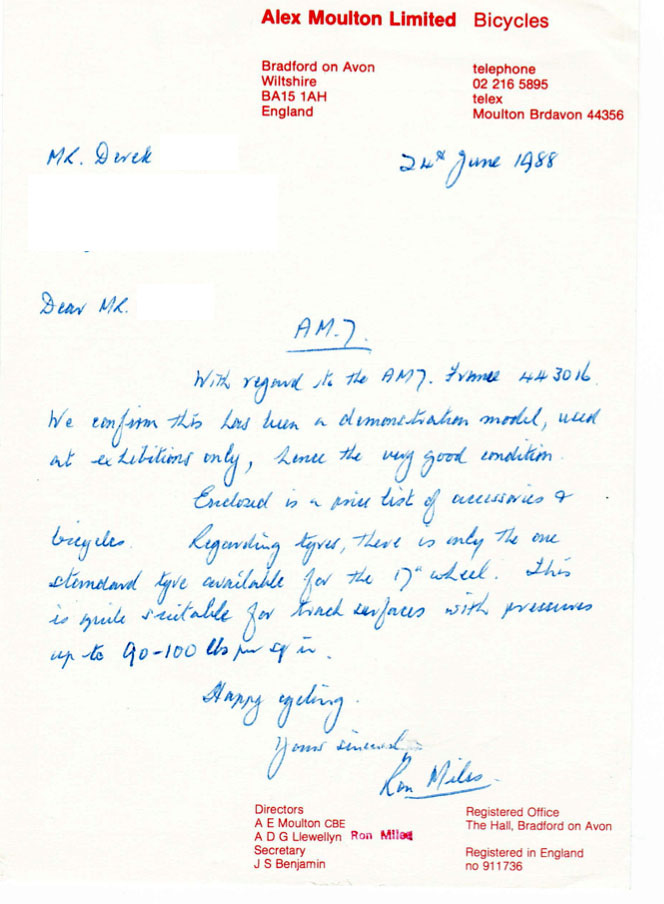 Alex Moulton Limited Bicycles
Bradford on Avon
Wiltshire
BA15 1AH
England
telephone
02 216 5895
telex
Moulton Brdavon 44356
Mr. Derek
24th June 1988
Dear Mr.
AM.7.
With regard to the AM7. Frame 443016.
We confirm this has been a demonstration model, used
at exhibitions only, hence the very good condition.
Enclosed is a price list of accessories &
bicycles. Regarding tyres, there is only the one
standard tyre available for the 17" wheel. This
is quite suitable for track surfaces with pressures
up to 90-100 lbs per sq in.
Happy cycling.
Yours sincerely
Ron Miles.
Directors
A E Moulton CBE
A D G Llewellyn Ron Miles
Secretary
J S Benjamin
Registered Office
The Hall, Bradford on Avon
Registered in England
no 911736